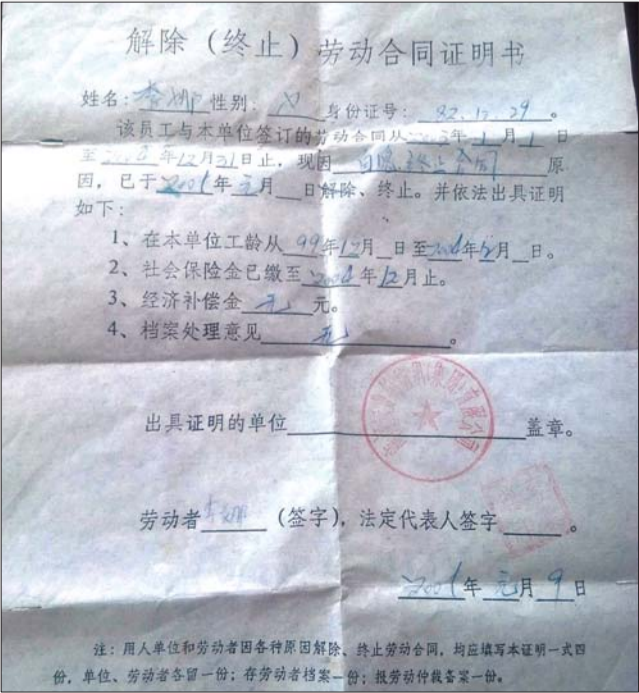 解除（终止）劳动合同证明书
姓名：李娜 性别：女 身份证号：82.12.29。
该员工与本单位签订的劳动合同从 年1月1日
至2004年12月31日止，现因 终止合同 原
因，已于 年元月 日解除、终止。并依法出具证明
如下：
1、在本单位工龄从99年12月 日至2004年12月 日。
2、社会保险金已缴至2004年12月止。
3、经济补偿金 无 元。
4、档案处理意见 无 。
出具证明的单位 盖章。
劳动者 李娜 （签字），法定代表人签字 。
年元月9日
注：用人单位和劳动者因各种原因解除、终止劳动合同，均应填写本证明一式四
份，单位、劳动者各留一份；存劳动者档案一份；报劳动仲裁备案一份。